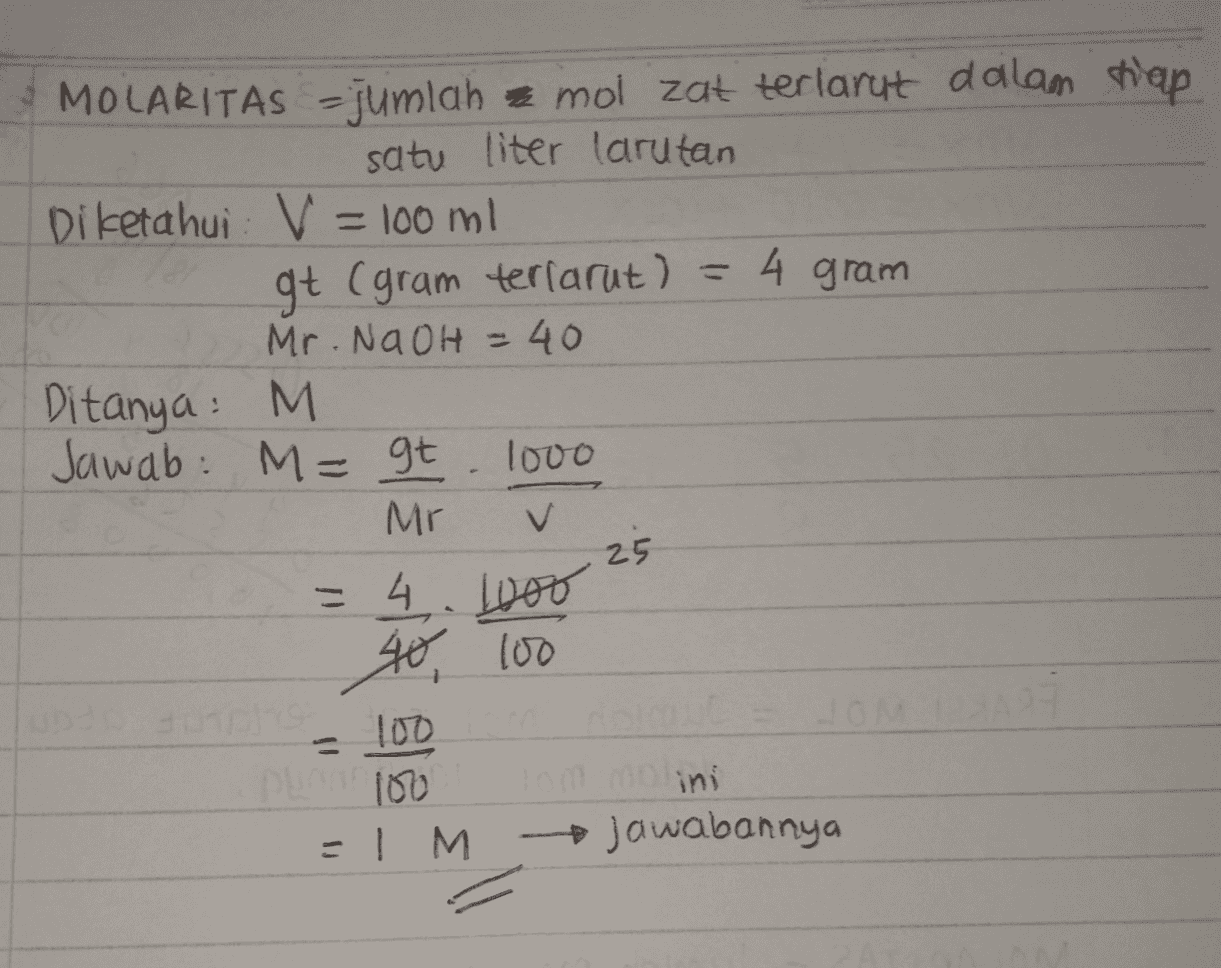 MOLARITAS = jumlah mol zat terlarut dalam tiap
satu liter larutan
Diketahui: V = 100 ml
gt (gram terlarut) = 4 gram
Mr. NaOH = 40
Ditanya: M
Jawab: M = gt . 1000
Mr V
25
= 4 . 1000
40 1 100
= 100
100
ini
= 1 M → jawabannya